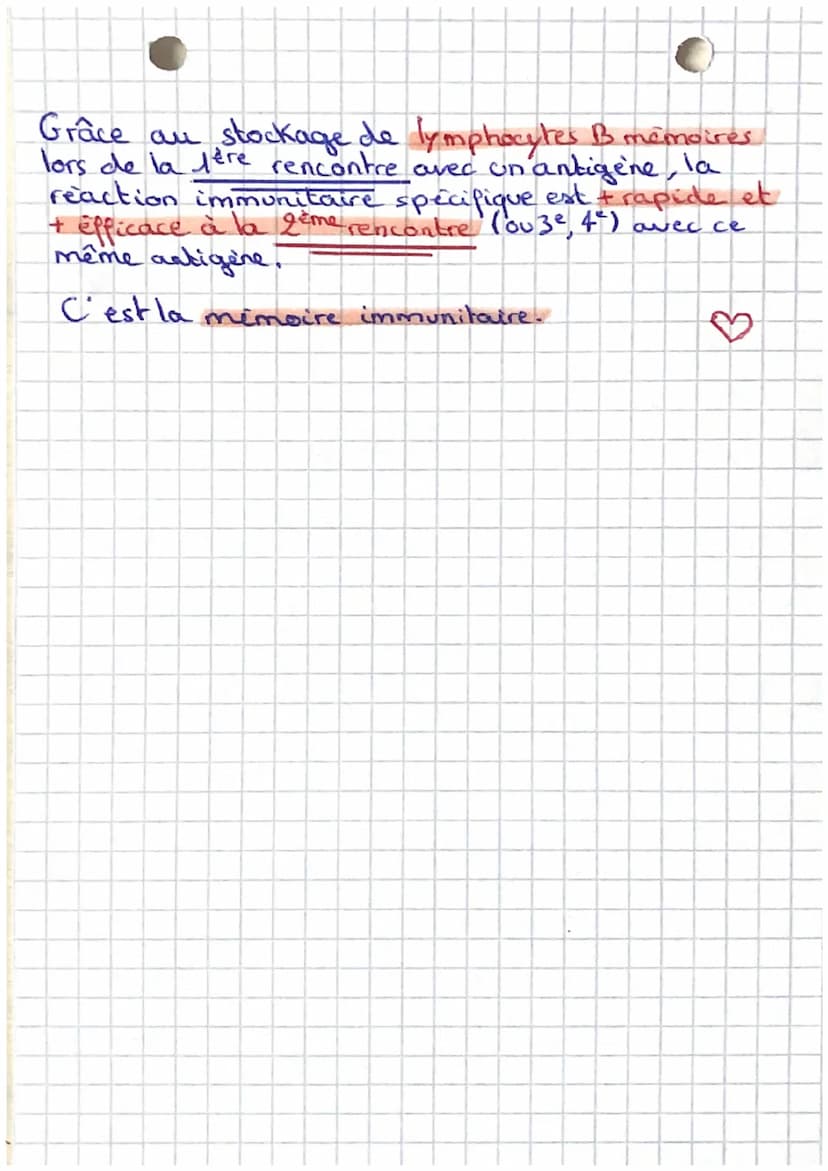 Grâce au stockage de lymphocytes B mémoires
lors de la 1ère rencontre avec un antigène, la
réaction immunitaire spécifique est + rapide et
+ éfficace à la 2ème rencontre (ou 3e, 4e) avec ce
même antigène.
C'est la mémoire immunitaire.